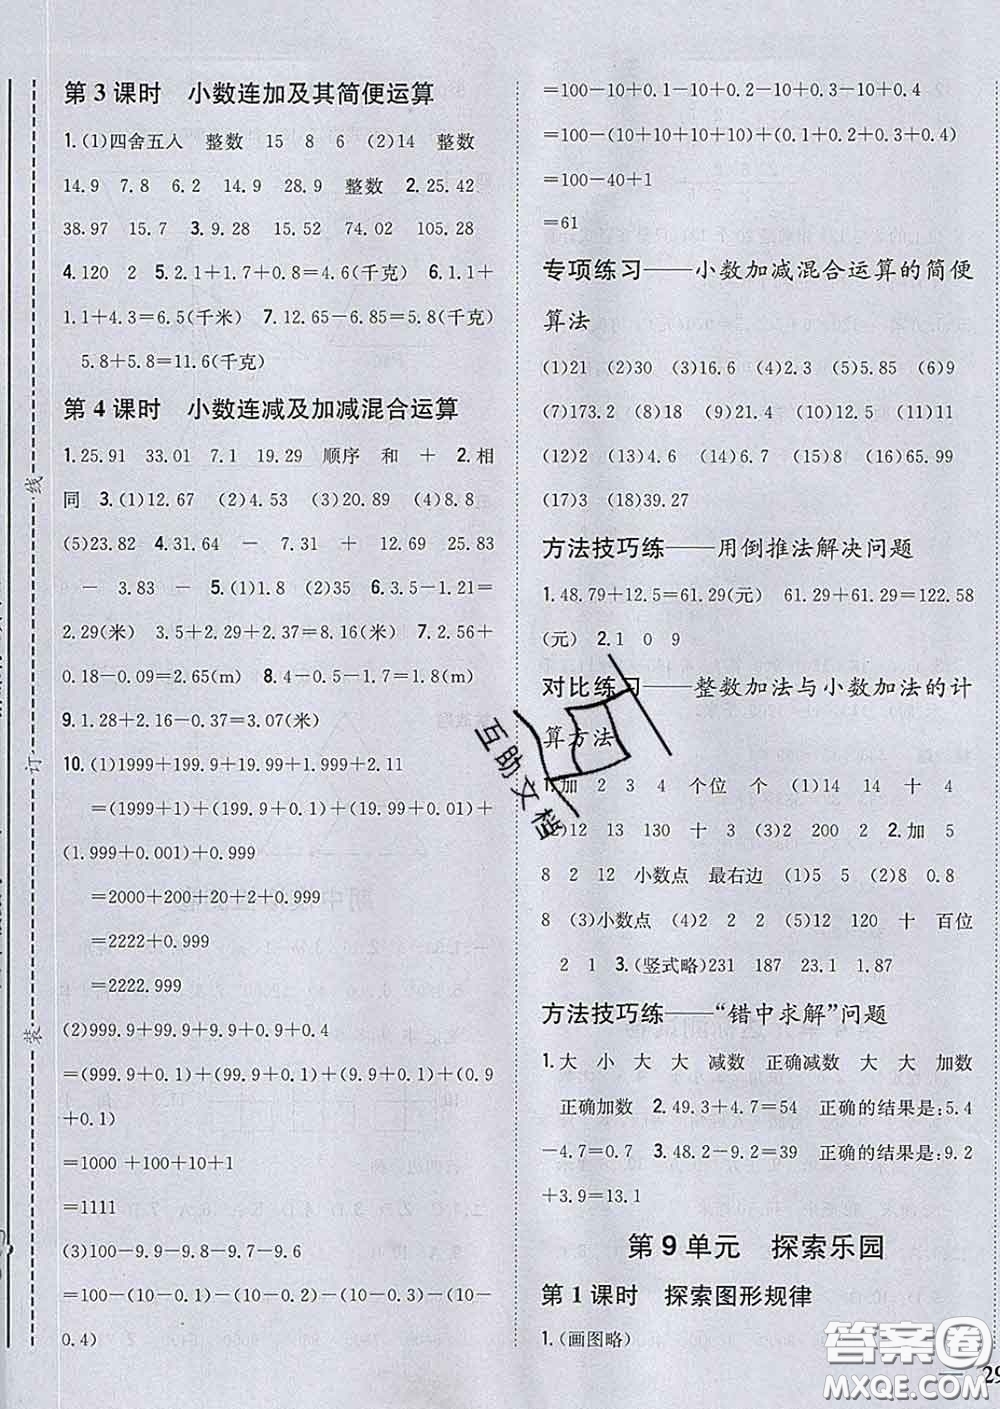 第3课时 小数连加及其简便运算
1.(1)四舍五人 整数 15 8 6 (2)14 整数
14.9 7.8 6.2 14.9 28.9 整数 2.25.42
38.97 15.7 3.9.28 51.45 74.02 105.28
4.120 2 5.2.1+1.9+0.6=4.6(千克) 6.1.1+
1.1+4.3=6.5(千米) 7.12.65-6.85=5.8(千克)
5.8+5.8=11.6(千克)
第4课时 小数连减及加减混合运算
1.25.91 33.01 7.1 19.29 顺序 和 + 2.相
同 3.(1)12.67 (2)4.53 (3)20.89 (4)8.8
(5)23.82 4.31.64 - 7.31 + 12.69 25.83
- 3.83 - 5.(1)1.8 (2)35 6.3.5-1.21=
2.29(米) 3.5+2.29+2.37=8.16(米) 7.2.56+
0.18-0.09=2.65(m) 8.4-0.5-1.7=1.8(m)
9.1.28+2.16-0.37=3.07(米)
10.(1)1999+199.9+19.99+1.999+2.11
=(1999+1)+(199.9+0.1)+(19.99+0.01)+
(1.999+0.001)+0.999
=2000+200+20+2+0.999
=2222+0.999
=2222.999
(2)999.9+99.9+9.9+0.9+0.4
=(999.9+0.1)+(99.9+0.1)+(9.9+0.1)+(0.9
+0.1)
=1000 +100+10+1
=1111
(3)100-9.9-9.8-9.7-9.6
=100-(10-0.1)-(10-0.2)-(10-0.3)-(10-
0.4)
=100-10+0.1-10+0.2-10+0.3-10+0.4
=100-(10+10+10+10)+(0.1+0.2+0.3+0.4)
=100-40+1
=61
专项练习——小数加减混合运算的简便
算法
(1)21 (2)30 (3)16.9 (4)2.3 (5)6.8 (6)9
(7)173.2 (8)100 (9)4.8 (10)12.5 (11)11
(12)2 (13)16.7 (14)15 (15)8.2 (16)65.99
(17)3 (18)39.27
方法技巧练——用倒推法解决问题
1.48.79+12.5=61.29(元) 61.29+61.29=122.58
(元) 2.1 0 9
对比练习——整数加法与小数加法的计
算方法
1.加 2 3 4 个位 个 (1)14 14 十 4
(2)12 13 130 十 3 (3)2 200 2 2.加 5
8 2 12 小数点 最右边 (1)5 5 (2)8 0.8
8 (3)小数点 (4)2 2 2 (5)12 120 十 百位
2 1 3.(竖式略)231 187 23.1 1.87
方法技巧练——“错中求解”问题
1.大 小 大 大 减数 正确减数 大 大 加数
正确加数 2.49.3+4.7=54 正确的结果是:5.4
-4.7=0.7 3.48.2-9.2=39 正确的结果是:9.2
+3.9=13.1
第9单元 探索乐园
第1课时 探索图形规律
1.(画图略)
— 29
线
订
装
互助文档
答案圈
MXQE.COM